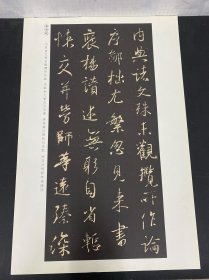 內典諸文殊未觀攬所作論
序鄙拙尤繁忽見來書
褒揚讚述撫躬自省慙
悚交并勞師等遠臻深